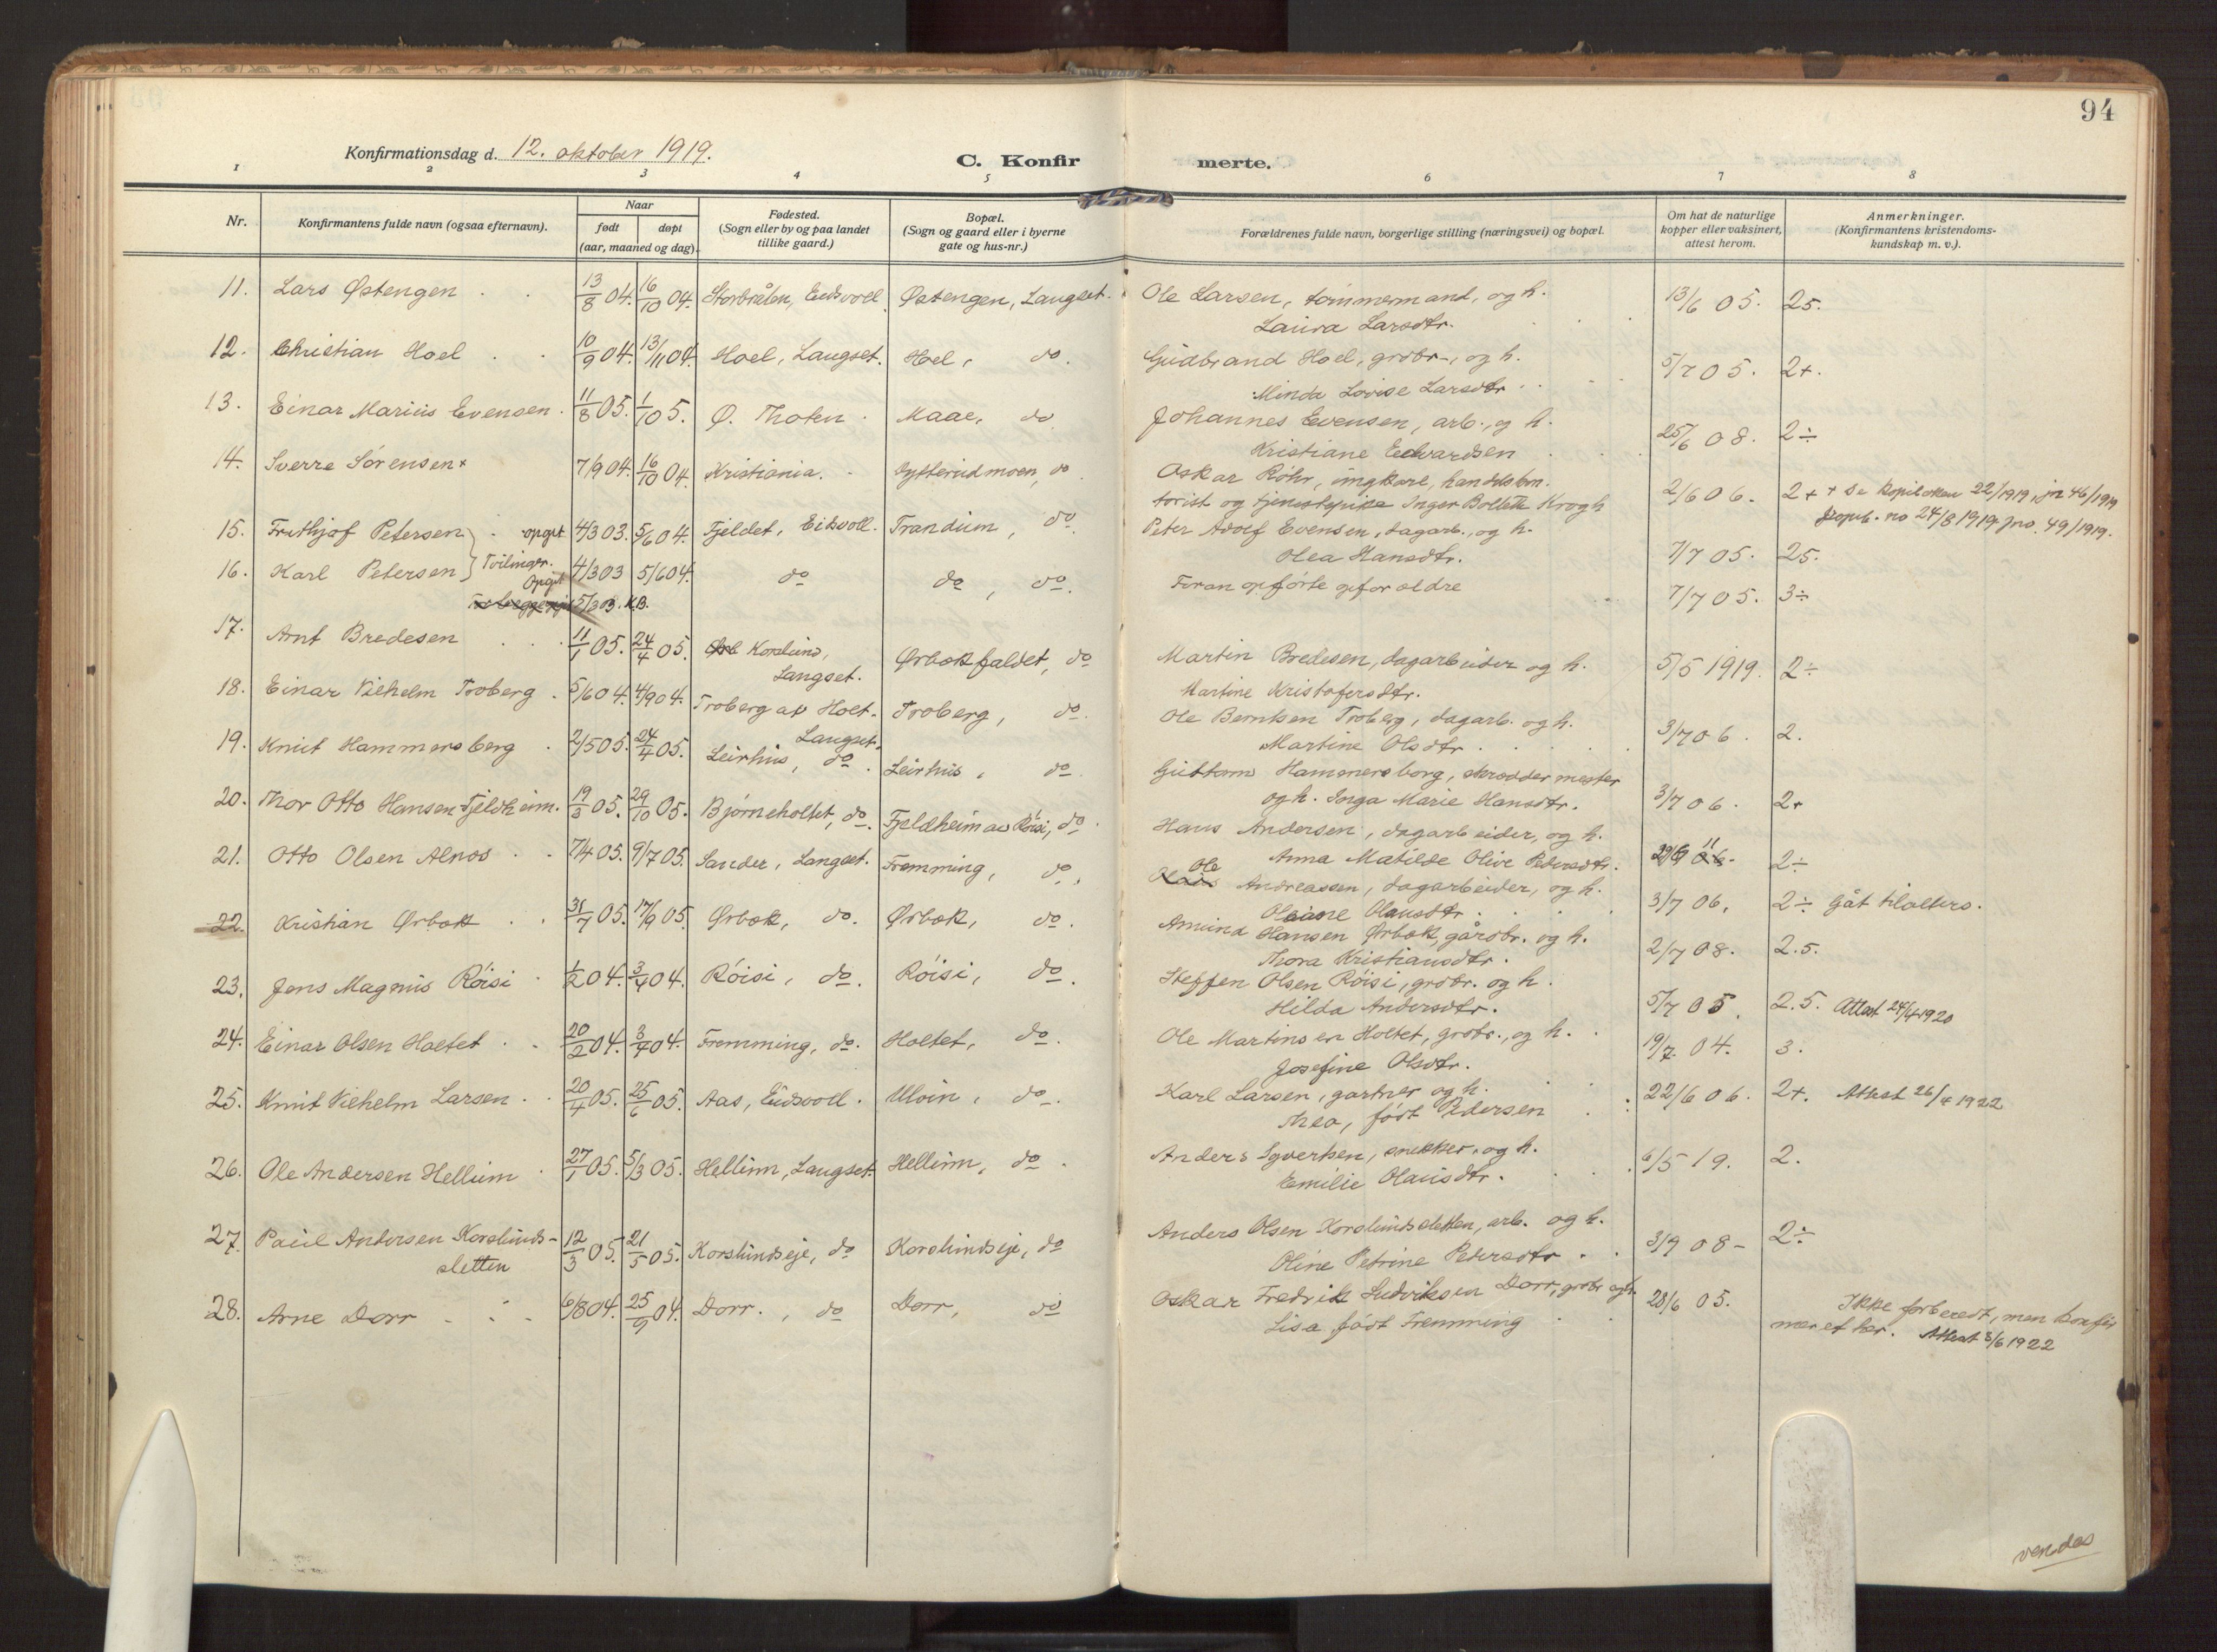 94
Konfirmationsdag d. 12. oktober 1919. C. Konfir merte.
1 2 3 4 5 6 7 8
Nr. Konfirmantens fulde navn (ogsaa efternavn). Naar født døpt (aar, maaned og dag). Fødested. (Sogn eller by og paa landet tillike gaard.) Bopæl. (Sogn og gaard eller i byerne gate og hus-nr.) Forældrenes fulde navn, borgerlige stilling (næringsvei) og bopæl. Om hat de naturlige kopper eller vaksinert, attest herom. Anmerkninger. (Konfirmantens kristendomskundskap m. v.).
11. Lars Østengen 13/8 04. 16/10 04. Stordalen, Eidsvoll Østengen, Langset. Ole Larsen, tømmermand, og h. 13/6 05. 25.
Laura Larsdtr.
12. Christian Hoel 10/9 04. 13/11 04. Hoel, Langset. Hoel, do. Gudbrand Hoel, grdbr., og h. 5/7 05. 2+.
Minda Lovise Larsdtr.
13. Einar Marius Evensen 11/8 05. 1/10 5. Ø. Thoten Maae, do. Johannes Evensen, arb., og h. 25/6 08. 2÷
Kristiane Edvardsen
14. Sverre Sørensen x 7/9 04. 16/10 04. Kristiania. do Oskar Röhr, ungkarl, handelskon- 2/6 06. 2+ + Se 22/1919, jn 46/1919
torist og tjenestepike Inger Bollette Krogh no 24/8 1919 Jno. 49/1919.
15. Frithjof Petersen } opgit 4/3 03. 5/6 04. Fjeldet, Eidsvoll. Trandum, do Peter Adolf Evensen, dagarb., og h. 7/7 05. 25.
Olea Hansdtr.
16. Karl Petersen } Tvilinger. Opgit 4/3 03 5/6 04. do do, do. Foran opførte forældre 7/7 05. 3÷
5/3 03. K.B.
17. Arnt Bredesen 11/1 05. 24/4 05. Korslund, Langset. Ørbækfaldet, do Martin Bredesen, dagarbeider og h. 5/5 1919. 2÷
Martine Kristofersdtr.
18. Einar Vilhelm Troberg 5/6 04. 4/9 04. Troberg av Hoel, Langset. Troberg, do. Ole Berntsen Troberg, dagarb. og h. 3/7 06. 2.
Martine Olsdtr.
19. Knut Hammersberg 2/5 05. 24/4 05. Leirhus, do. Leirhus, do. Guttorm Hammersborg, skræddermester 3/7 06. 2+
og h. Inga Marie Hansdtr.
20. Thor Otto Hansen Fjeldheim. 19/3 05. 29/10 05. Bjørneholtet, do. Fjeldheim av Röisi, do. Hans Andersen, dagarbeider, og h. 11 2÷
Anna Matilde Olive Pedersdtr.
21. Otto Olsen Alnos 7/4 05. 9/7 05. Sander, Langset. Fremming, do. Ole Andreassen, dagarbeider, og h. 3/7 06, 2÷ Gåt tilalters.
Oliane Olausdtr.
22. Kristian Ørbæk 31/7 05. 17/9 05. Ørbæk, do. Ørbæk, do. Amund Hansen Ørbæk, gårdbr. og h. 2/7 08. 2.5.
Thora Kristiansdtr.
23. Jens Magnus Röisi 1/2 04. 3/4 04. Röisi, do. Röisi, do. Steffen Olsen Röisi, grdbr. og h. 5/7 05. 2.5. Attest 24/4 1920
Hilda Andersdtr.
24. Einar Olsen Holtet 20/2 04. 3/4 04. Fremming, do. Holtet, do. Ole Martinsen Holtet, grdbr., og h. 19/7 04. 3.
Josefine Olsdtr.
25. Knut Vilhelm Larsen 20/4 05. 25/6 05. Aas, Eidsvoll. Ulvin, do. Karl Larsen, gartner og h. 22/6 06. 2+. Attest 26/4 1922
Thea, født Pedersen
26. Ole Andersen Hellum 27/1 05. 5/3 05. Hellum, Langset. Hellum, do. Anders Syvertsen, snekker, og h. 6/5 19. 2.
Emilie Olausdtr.
27. Paul Andersen Korslunds- 12/3 05. 21/5 05. Korslundseje, do Korslundseje, do Anders Olsen Korslundsletten, arb. og h. 3/9 08- 2÷
sletten Oline Petrine Pedersdtr
28. Arne Dorr 6/8 04. 25/9 04. Dorr., do Dorr, do Oskar Fredrik Ludviksen Dorr, grdbr og h. 28/6 05. Ikke forberedt, men konfir
Lisa, født Fremming meret her. Attest 3/6 1922
vendes